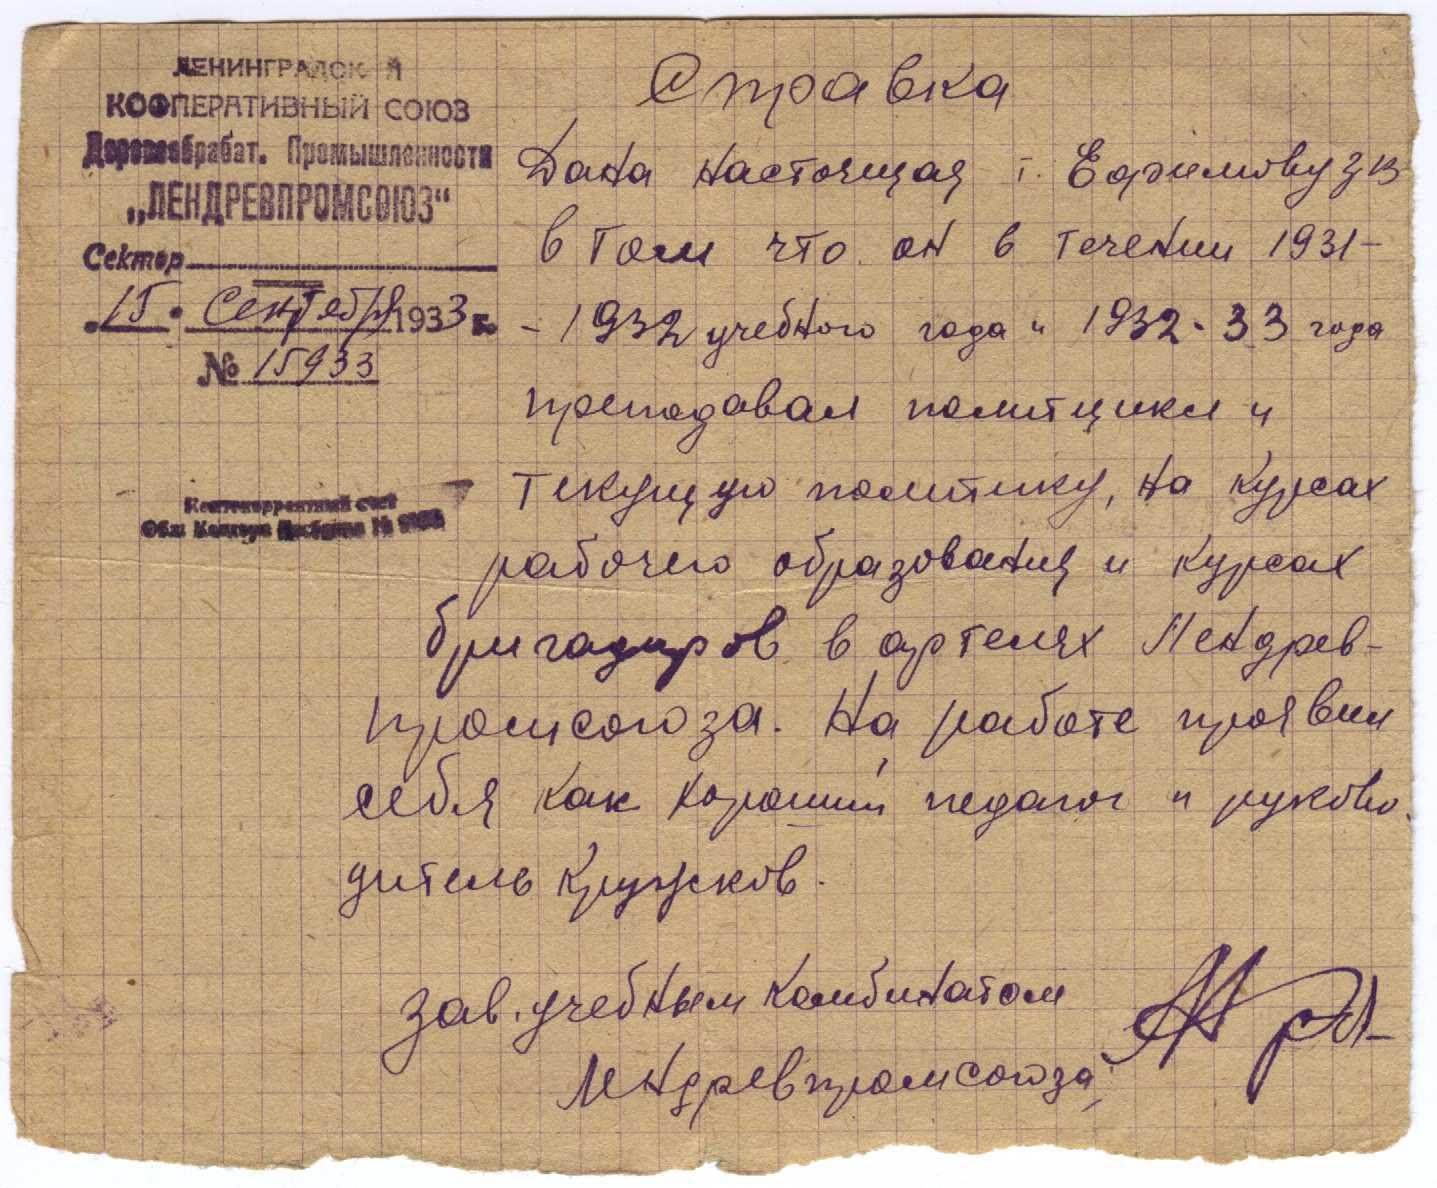 ЛЕНИНГРАДСКИЙ
КООПЕРАТИВНЫЙ СОЮЗ
Деревообрабат. Промышленности
„ЛЕНДРЕВПРОМСОЮЗ"
Сектор
15 Сентября 1933 г.
№ 15933
Контокоррентный счет
Обл. Контора
Справка
Дана настоящая т. Ефимову
в том что он в течении 1931-
- 1932 учебного года и 1932-33 года
преподавал политцикл и
текущую политику, на курсах
рабочего образования и курсах
бригадиров в артелях Лендрев-
промсоюза. На работе проявил
себя как хороший педагог и руково
дитель кружков.
Зав. учебным комбинатом
Лендревпромсоюза